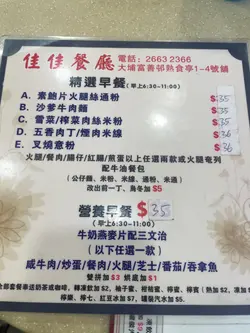 佳佳餐廳
電話：2663 2366
大埔富善邨熱食亭1-4號舖
精選早餐 (早上6:30-11:00)
A. 素鮑片火腿絲通粉 $35
B. 沙爹牛肉麵 $35
C. 雪菜/榨菜肉絲米粉 $35
D. 五香肉丁/煙肉米線 $36
E. 叉燒意粉 $36
火腿/餐肉/腸仔/紅腸/煎蛋以上任選兩款或火腿奄列
配牛油餐包
(公仔麵、米粉、米線、通粉、米通)
改出前一丁、烏冬加$5
營養早餐 $35
(早上6:30-11:00)
牛奶燕麥片配三文治
(以下任選一款)
咸牛肉/炒蛋/餐肉/火腿/芝士/番茄/吞拿魚
雙拼加$3 烘底加$1